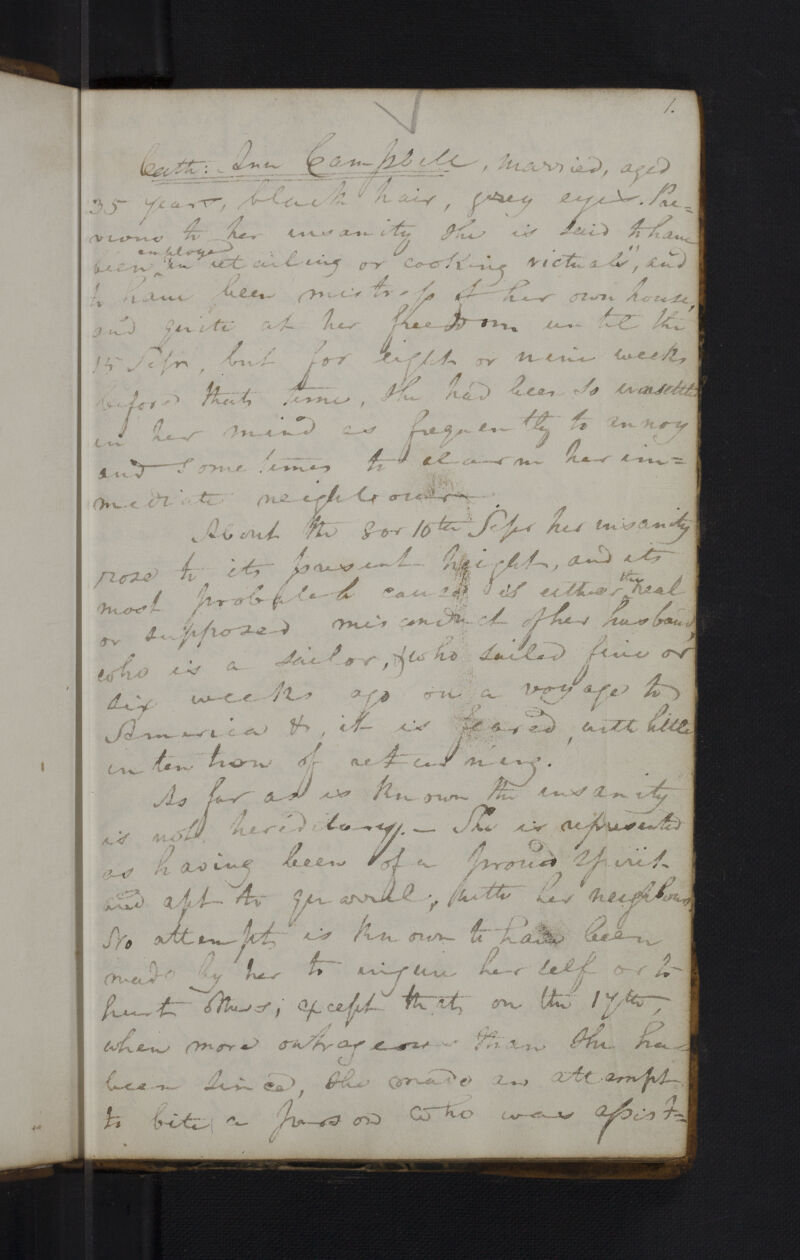 1.
Cath: Ann Campbell, married, aged
35 years, black hair, grey eyes. Pre=
vious to her insanity she is said to have
employed
been "in retailing or cooking victuals", and
to have been mistress of her own house,
and quite at her freedom until the
15 Sepr, but for eight or nine weeks
before that time, she had been so unsettled
in her mind as frequently to annoy
and sometimes to alarm her im=
mediate neighbours
About the 8 or 10th Sepr her insanity
rose to its present height, and its
most probable cause is either the real
or supposed misconduct of her husband,
who is a sailor, & who sailed five or
six weeks ago on a voyage to
America &, it is feared, with little
intention of returning.
As far as is known the insanity
is not hereditary. - She is represented
as having been of a proud spirit
and apt to quarrel, with her neighbours.
No attempt is known to have been
made by her to injure herself or to
hurt others; except that on the 17th,
when more outrageous than she has
been since, she made an attempt
to bite a person who was assist=